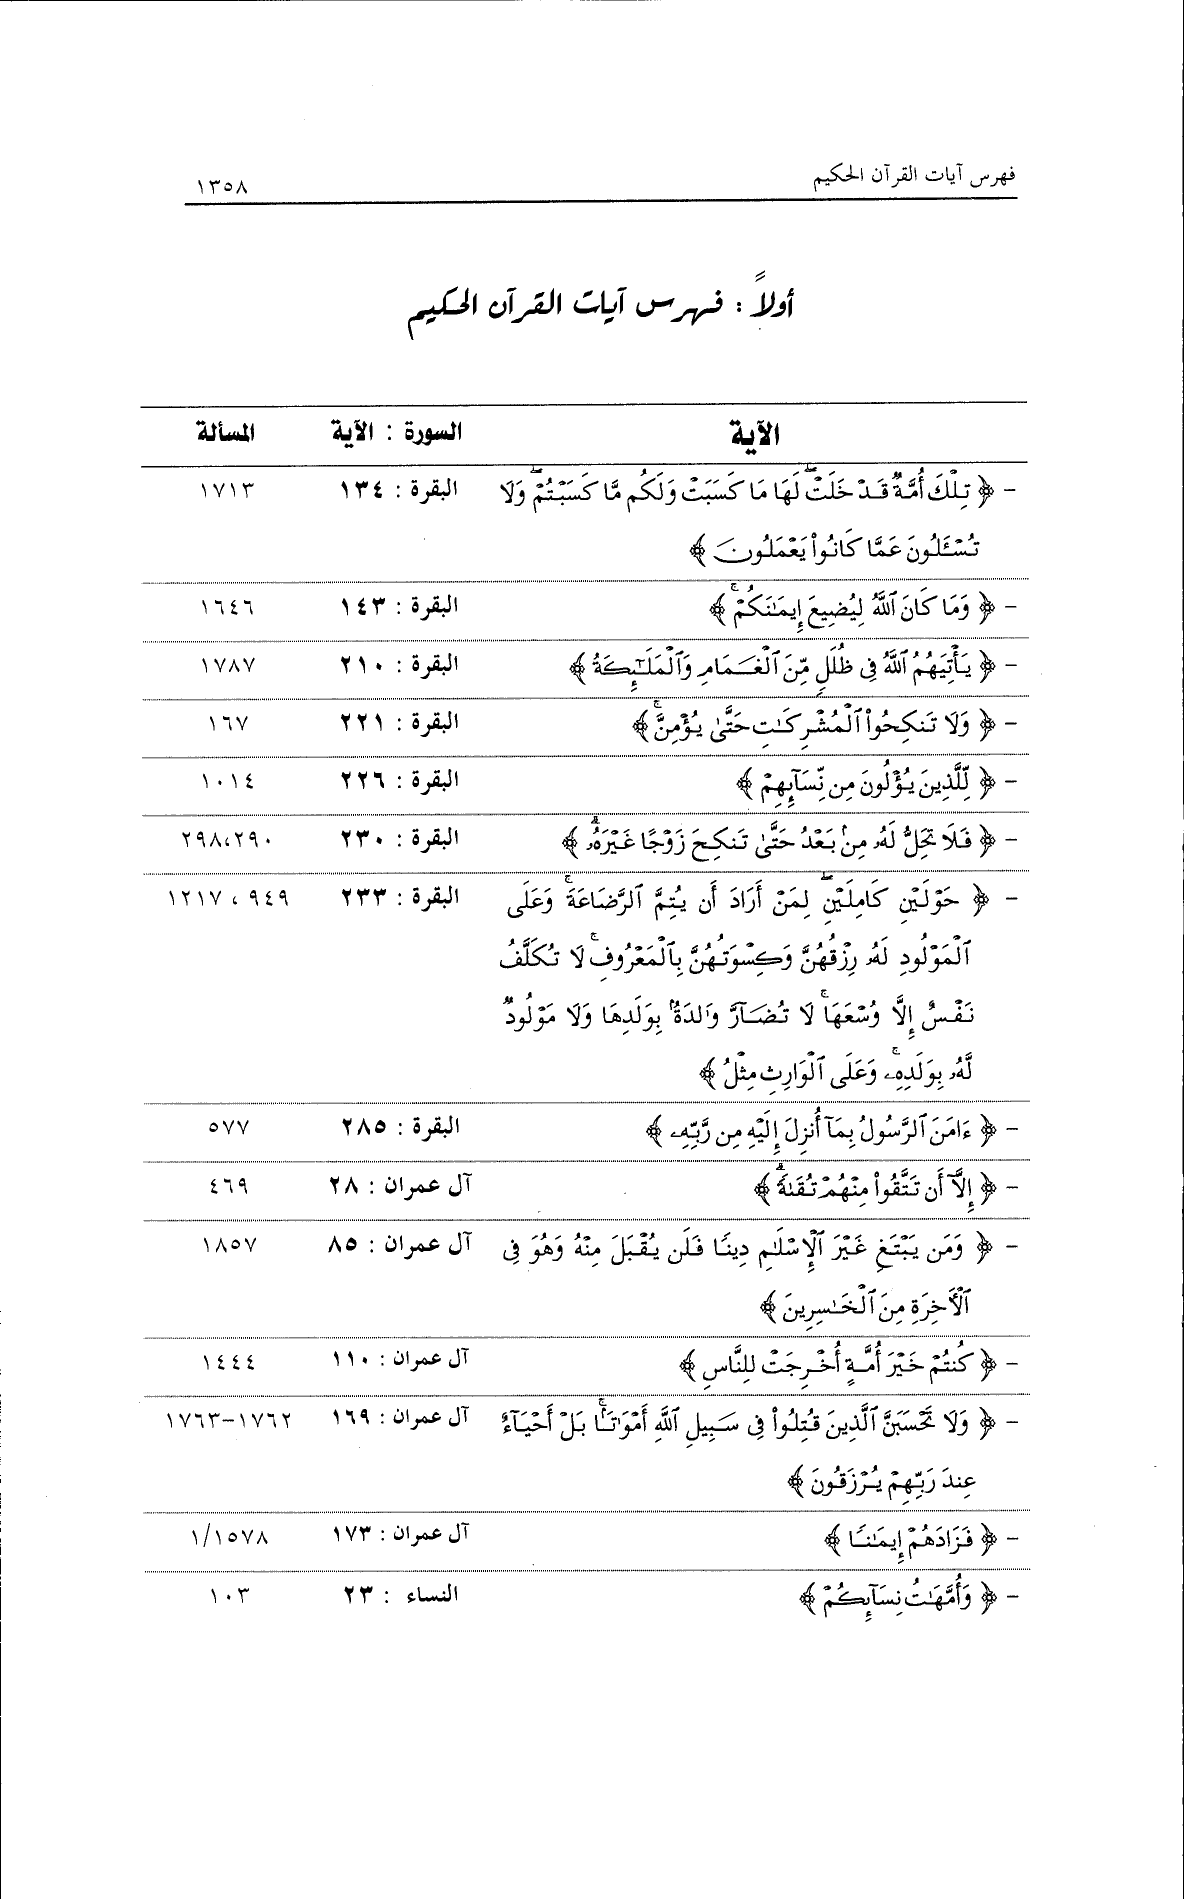 فهرس آيات القرآن الحكيم ١٣٥٨
أولاً : فهرس آيات القرآن الحكيم
الآية السورة : الآية المسألة
- ﴿ تِلْكَ أُمَّةٌ قَدْ خَلَتْ ۖ لَهَا مَا كَسَبَتْ وَلَكُم مَّا كَسَبْتُمْ ۖ وَلَا البقرة : ١٣٤ ١٧١٣
تُسْـَٔلُونَ عَمَّا كَانُوا۟ يَعْمَلُونَ ﴾
- ﴿ وَمَا كَانَ ٱللَّهُ لِيُضِيعَ إِيمَـٰنَكُمْ ۚ ﴾ البقرة : ١٤٣ ١٦٤٦
- ﴿ يَأْتِيَهُمُ ٱللَّهُ فِى ظُلَلٍ مِّنَ ٱلْغَمَامِ وَٱلْمَلَـٰٓئِكَةُ ﴾ البقرة : ٢١٠ ١٧٨٧
- ﴿ وَلَا تَنكِحُوا۟ ٱلْمُشْرِكَـٰتِ حَتَّىٰ يُؤْمِنَّ ۚ ﴾ البقرة : ٢٢١ ١٦٧
- ﴿ لِّلَّذِينَ يُؤْلُونَ مِن نِّسَآئِهِمْ ﴾ البقرة : ٢٢٦ ١٠١٤
- ﴿ فَلَا تَحِلُّ لَهُۥ مِنۢ بَعْدُ حَتَّىٰ تَنكِحَ زَوْجًا غَيْرَهُۥ ۗ ﴾ البقرة : ٢٣٠ ٢٩٨،٢٩٠
- ﴿ حَوْلَيْنِ كَامِلَيْنِ ۖ لِمَنْ أَرَادَ أَن يُتِمَّ ٱلرَّضَاعَةَ ۚ وَعَلَى البقرة : ٢٣٣ ٩٤٩ ، ١٢١٧
ٱلْمَوْلُودِ لَهُۥ رِزْقُهُنَّ وَكِسْوَتُهُنَّ بِٱلْمَعْرُوفِ ۚ لَا تُكَلَّفُ
نَفْسٌ إِلَّا وُسْعَهَا ۚ لَا تُضَآرَّ وَٰلِدَةٌۢ بِوَلَدِهَا وَلَا مَوْلُودٌ
لَّهُۥ بِوَلَدِهِۦ ۚ وَعَلَى ٱلْوَارِثِ مِثْلُ ﴾
- ﴿ ءَامَنَ ٱلرَّسُولُ بِمَآ أُنزِلَ إِلَيْهِ مِن رَّبِّهِۦ ﴾ البقرة : ٢٨٥ ٥٧٧
- ﴿ إِلَّآ أَن تَتَّقُوا۟ مِنْهُمْ تُقَىٰةً ۗ ﴾ آل عمران : ٢٨ ٤٦٩
- ﴿ وَمَن يَبْتَغِ غَيْرَ ٱلْإِسْلَـٰمِ دِينًا فَلَن يُقْبَلَ مِنْهُ وَهُوَ فِى آل عمران : ٨٥ ١٨٥٧
ٱلْـَٔاخِرَةِ مِنَ ٱلْخَـٰسِرِينَ ﴾
- ﴿ كُنتُمْ خَيْرَ أُمَّةٍ أُخْرِجَتْ لِلنَّاسِ ﴾ آل عمران : ١١٠ ١٤٤٤
- ﴿ وَلَا تَحْسَبَنَّ ٱلَّذِينَ قُتِلُوا۟ فِى سَبِيلِ ٱللَّهِ أَمْوَٰتًۢا ۚ بَلْ أَحْيَآءٌ آل عمران : ١٦٩ ١٧٦٢-١٧٦٣
عِندَ رَبِّهِمْ يُرْزَقُونَ ﴾
- ﴿ فَزَادَهُمْ إِيمَـٰنًا ﴾ آل عمران : ١٧٣ ١/١٥٧٨
- ﴿ وَأُمَّهَـٰتُ نِسَآئِكُمْ ﴾ النساء : ٢٣ ١٠٣